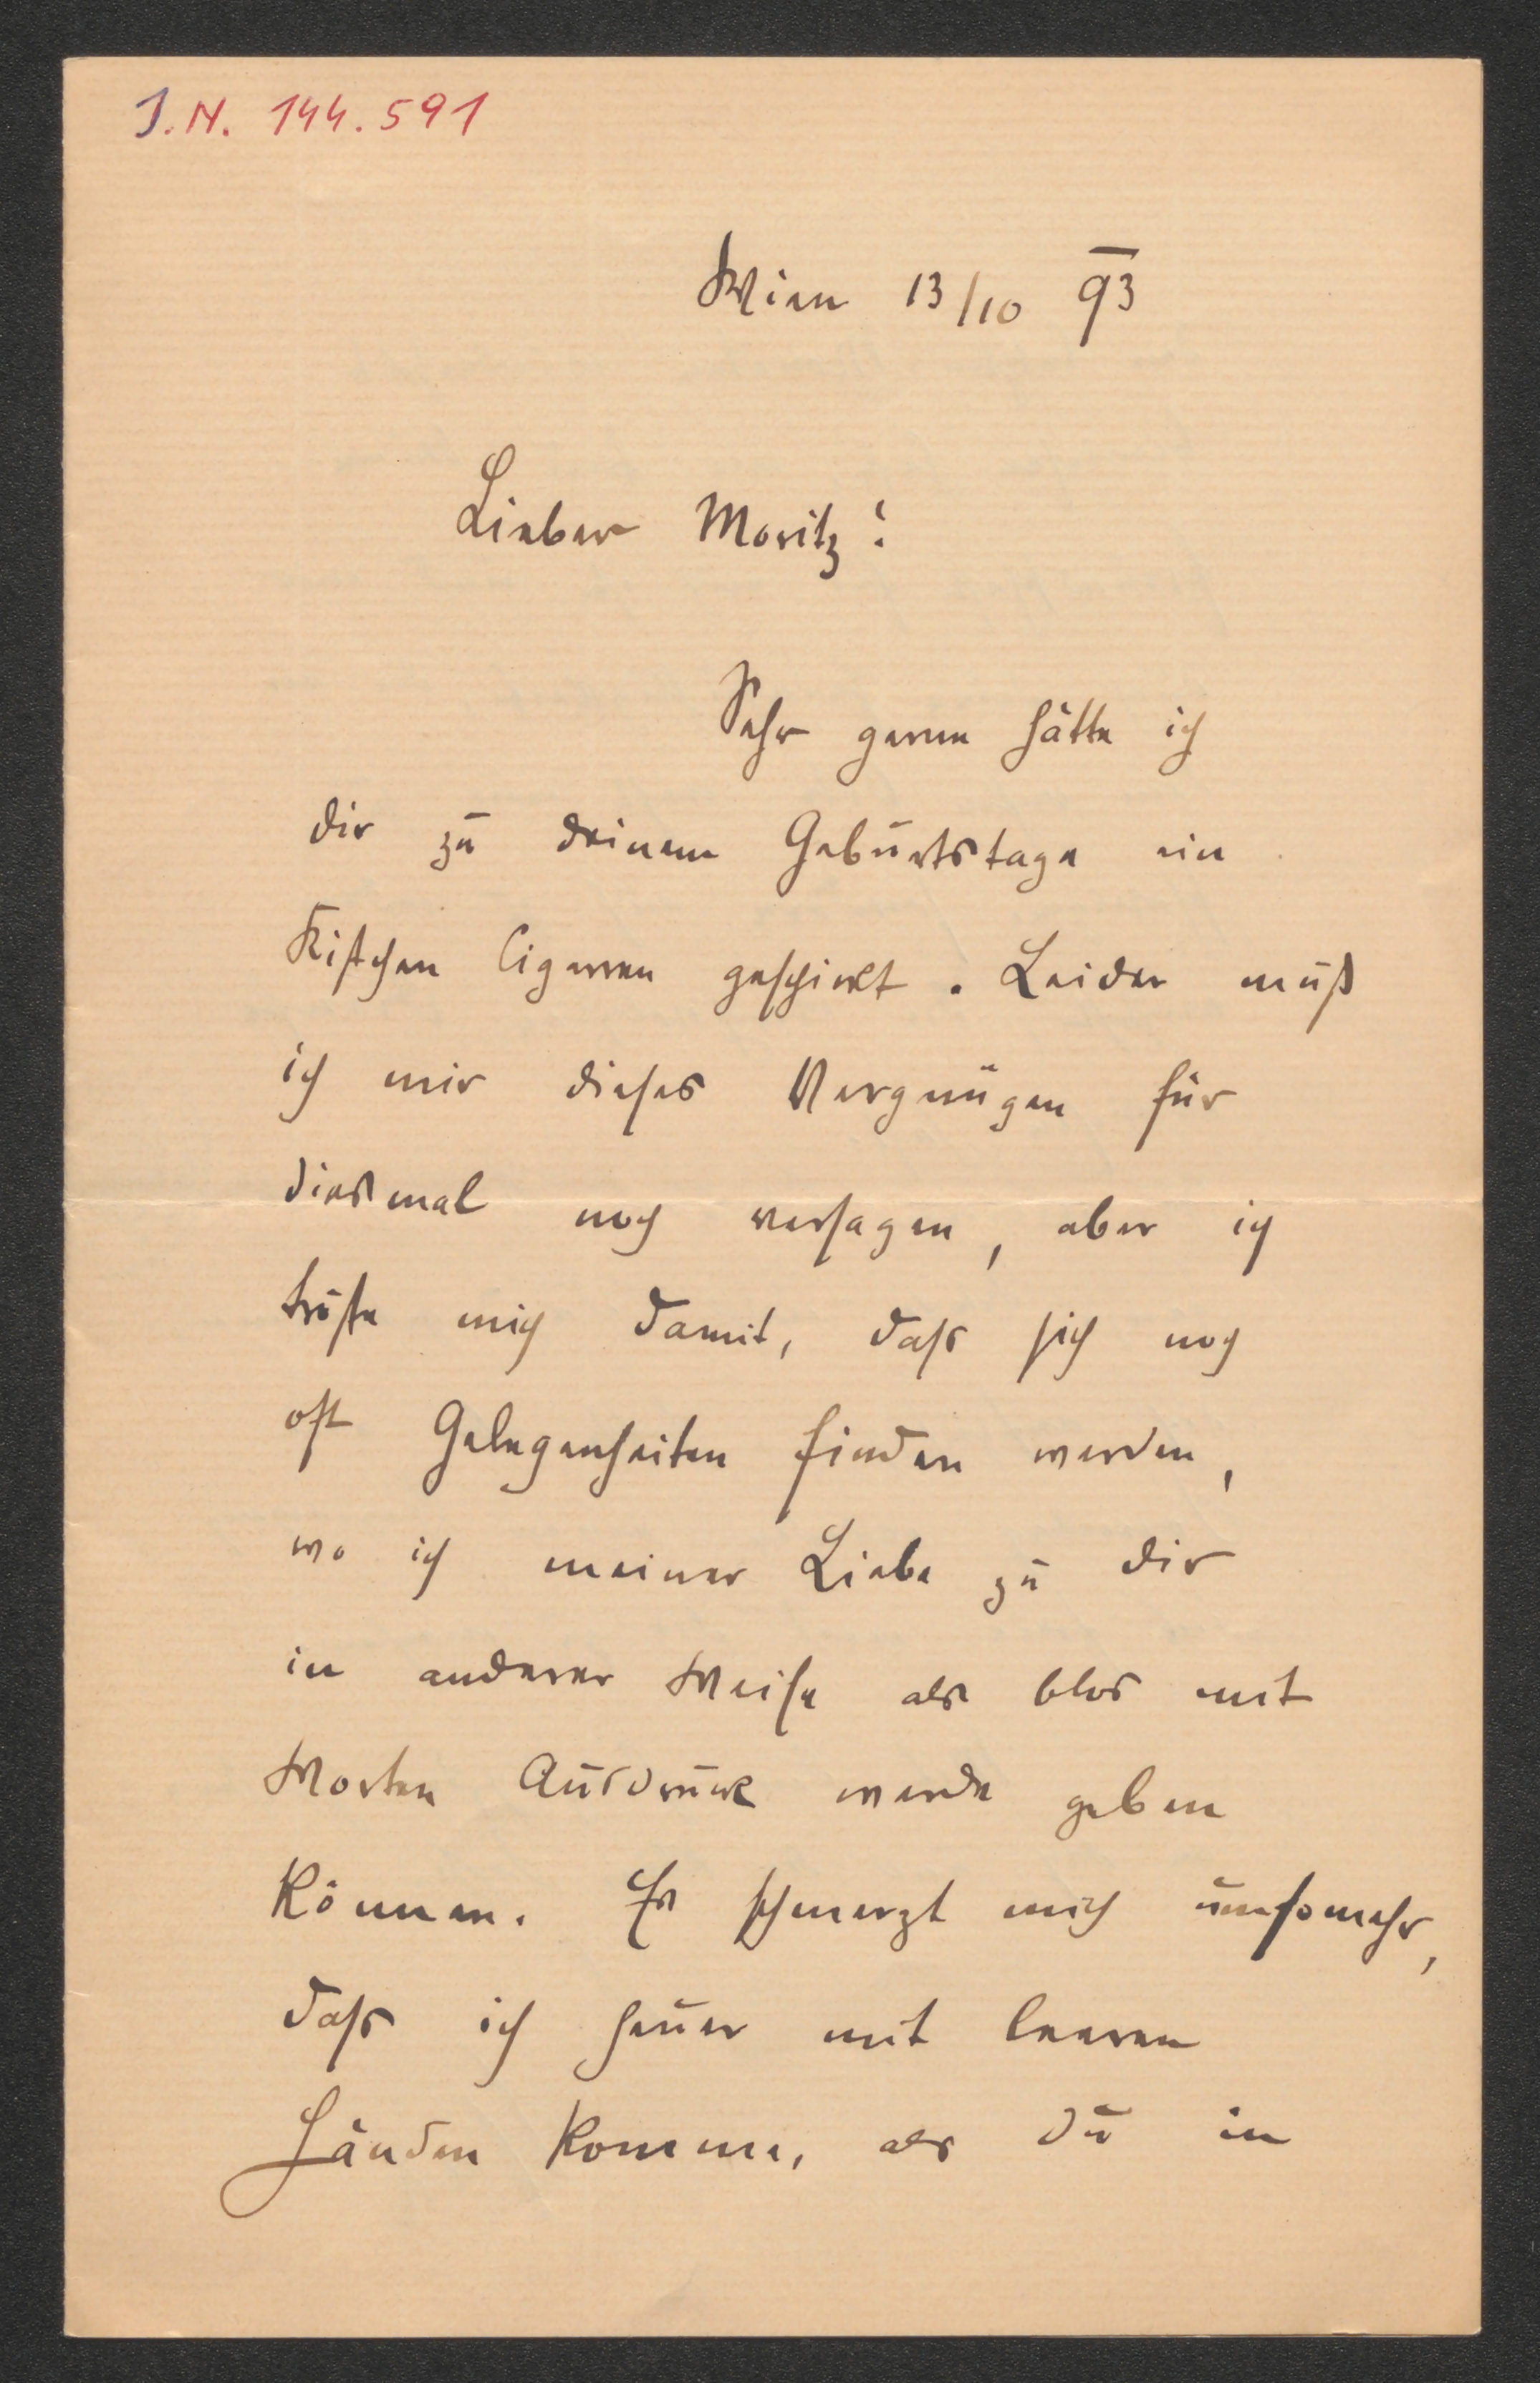 J.N. 144.591
Wien 13/10 93
Lieber Moritz!
Sehr gerne hätte ich
dir zu deinem Geburtstage ein
Kistchen Cigarren geschickt. Leider muß
ich mir dieses Vergnügen für
diesmal noch versagen, aber ich
tröste mich damit, dass sich noch
oft Gelegenheiten finden werden,
wo ich meiner Liebe zu dir
in anderer Weise als blos mit
Worten Ausdruck werde geben
können. Es schmerzt mich umsomehr,
dass ich heuer mit leeren
Händen komme, als du in